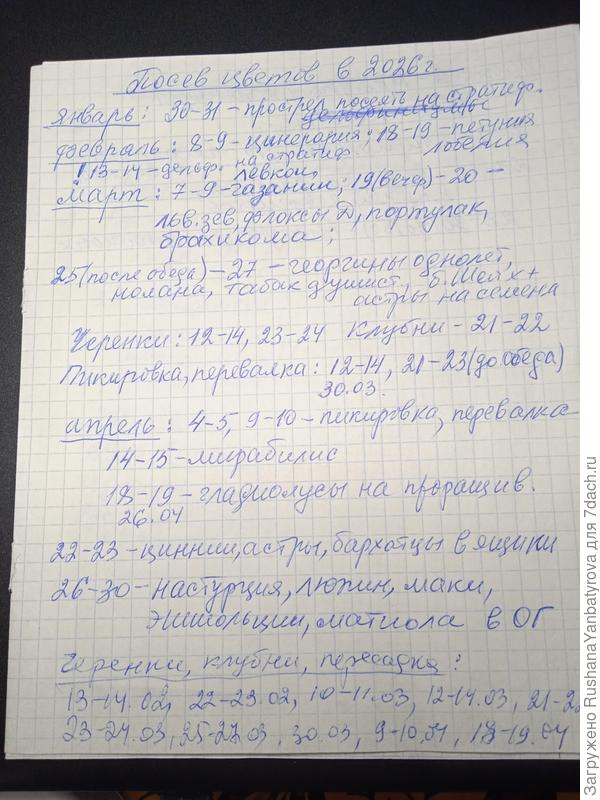 Посев цветов в 2026г.
Январь: 30-31 – прострел посеять на стратиф.
февраль: 8-9 – цинерария; 18-19 – петуния
13-14 – дельф. на стратиф. лобелия
левкои,
Март: 7-9 – газании; 19(вечер) – 20 –
льв. зев, флоксы Д, портулак,
брахикома;
25(после обеда) – 27 – георгины однолет,
нолана, табак душист., б. Шейх +
астры на семена
Черенки: 12-14, 23-24 Клубни – 21-22
Пикировка, перевалка: 12-14, 21-23(до обеда)
30.03.
апрель: 4-5, 9-10 – пикировка, перевалка
14-15 – мирабилис
18-19 – гладиолусы на проращив.
26.04
22-23 – циннии, астры, бархатцы в ящики
26-30 – настурция, люпин, маки,
эшшольции, матиола в ОГ
Черенки, клубни, пересадка:
13-14.02, 22-23.02, 10-11.03, 12-14.03, 21-2
23-24.03, 25-27.03, 30.03, 9-10.04, 18-19.04
Загружено RushanaYanbatyrova для 7dach.ru